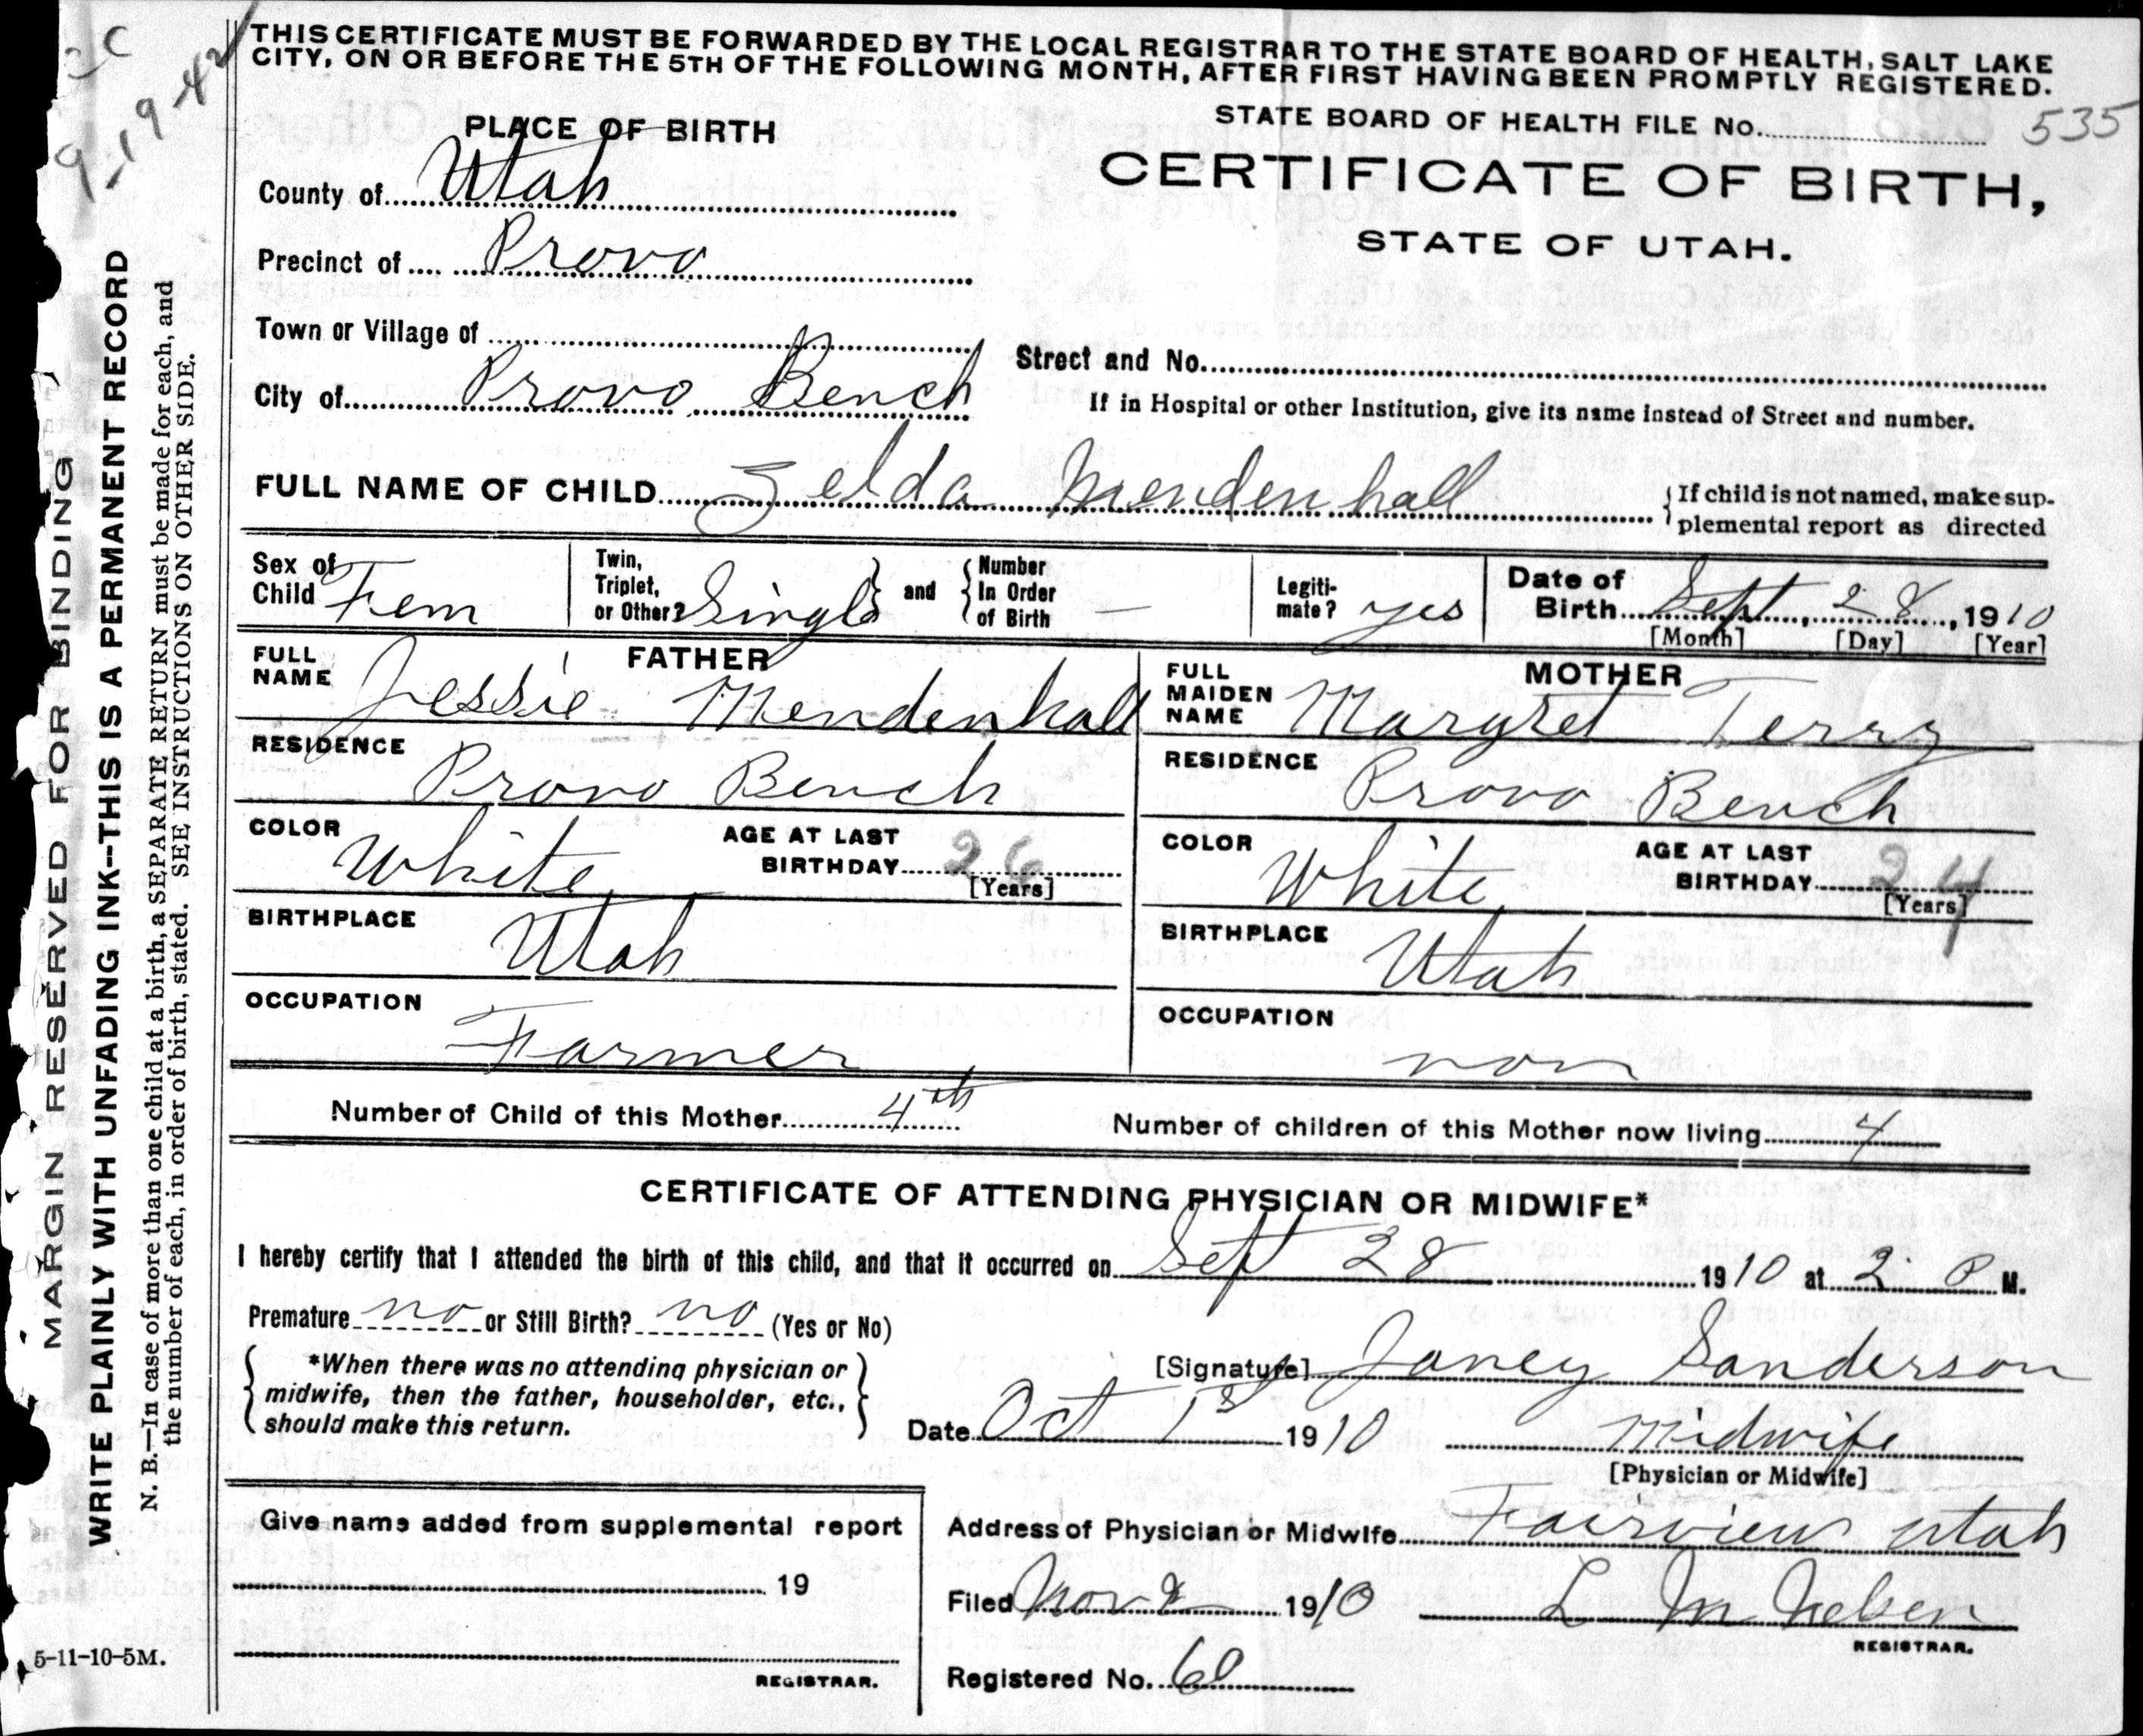 THIS CERTIFICATE MUST BE FORWARDED BY THE LOCAL REGISTRAR TO THE STATE BOARD OF HEALTH, SALT LAKE
CITY, ON OR BEFORE THE 5TH OF THE FOLLOWING MONTH, AFTER FIRST HAVING BEEN PROMPTLY REGISTERED.
9-19-42
STATE BOARD OF HEALTH FILE No. 535
PLACE OF BIRTH
CERTIFICATE OF BIRTH,
STATE OF UTAH.
County of Utah
Precinct of Provo
Town or Village of
City of Provo Bench
Street and No.
If in Hospital or other Institution, give its name instead of Street and number.
FULL NAME OF CHILD Zelda Mendenhall
If child is not named, make sup-
plemental report as directed
Sex of Child Fem
Twin, Triplet, or Other? Single and Number In Order of Birth —
Legiti-mate? yes
Date of Birth Sept 28, 1910
[Month] [Day] [Year]
FATHER
FULL NAME Jessie Mendenhall
RESIDENCE Provo Bench
COLOR White AGE AT LAST BIRTHDAY 26 [Years]
BIRTHPLACE Utah
OCCUPATION Farmer
MOTHER
FULL MAIDEN NAME Margret Terry
RESIDENCE Provo Bench
COLOR White AGE AT LAST BIRTHDAY 24 [Years]
BIRTHPLACE Utah
OCCUPATION non
Number of Child of this Mother 4th
Number of children of this Mother now living 4
CERTIFICATE OF ATTENDING PHYSICIAN OR MIDWIFE*
I hereby certify that I attended the birth of this child, and that it occurred on Sept 28 1910 at 2 P M.
Premature no or Still Birth? no (Yes or No)
*When there was no attending physician or
midwife, then the father, householder, etc.,
should make this return.
[Signature] Janey Sanderson
Date Oct 1st 1910 Midwife
[Physician or Midwife]
Give name added from supplemental report
19
REGISTRAR.
Address of Physician or Midwife Fairview Utah
Filed Nov 1910 L M
REGISTRAR.
Registered No. 60
5-11-10-5M.
MARGIN RESERVED FOR BINDING
WRITE PLAINLY WITH UNFADING INK--THIS IS A PERMANENT RECORD
N. B.—In case of more than one child at a birth, a SEPARATE RETURN must be made for each, and
the number of each, in order of birth, stated. SEE INSTRUCTIONS ON OTHER SIDE.